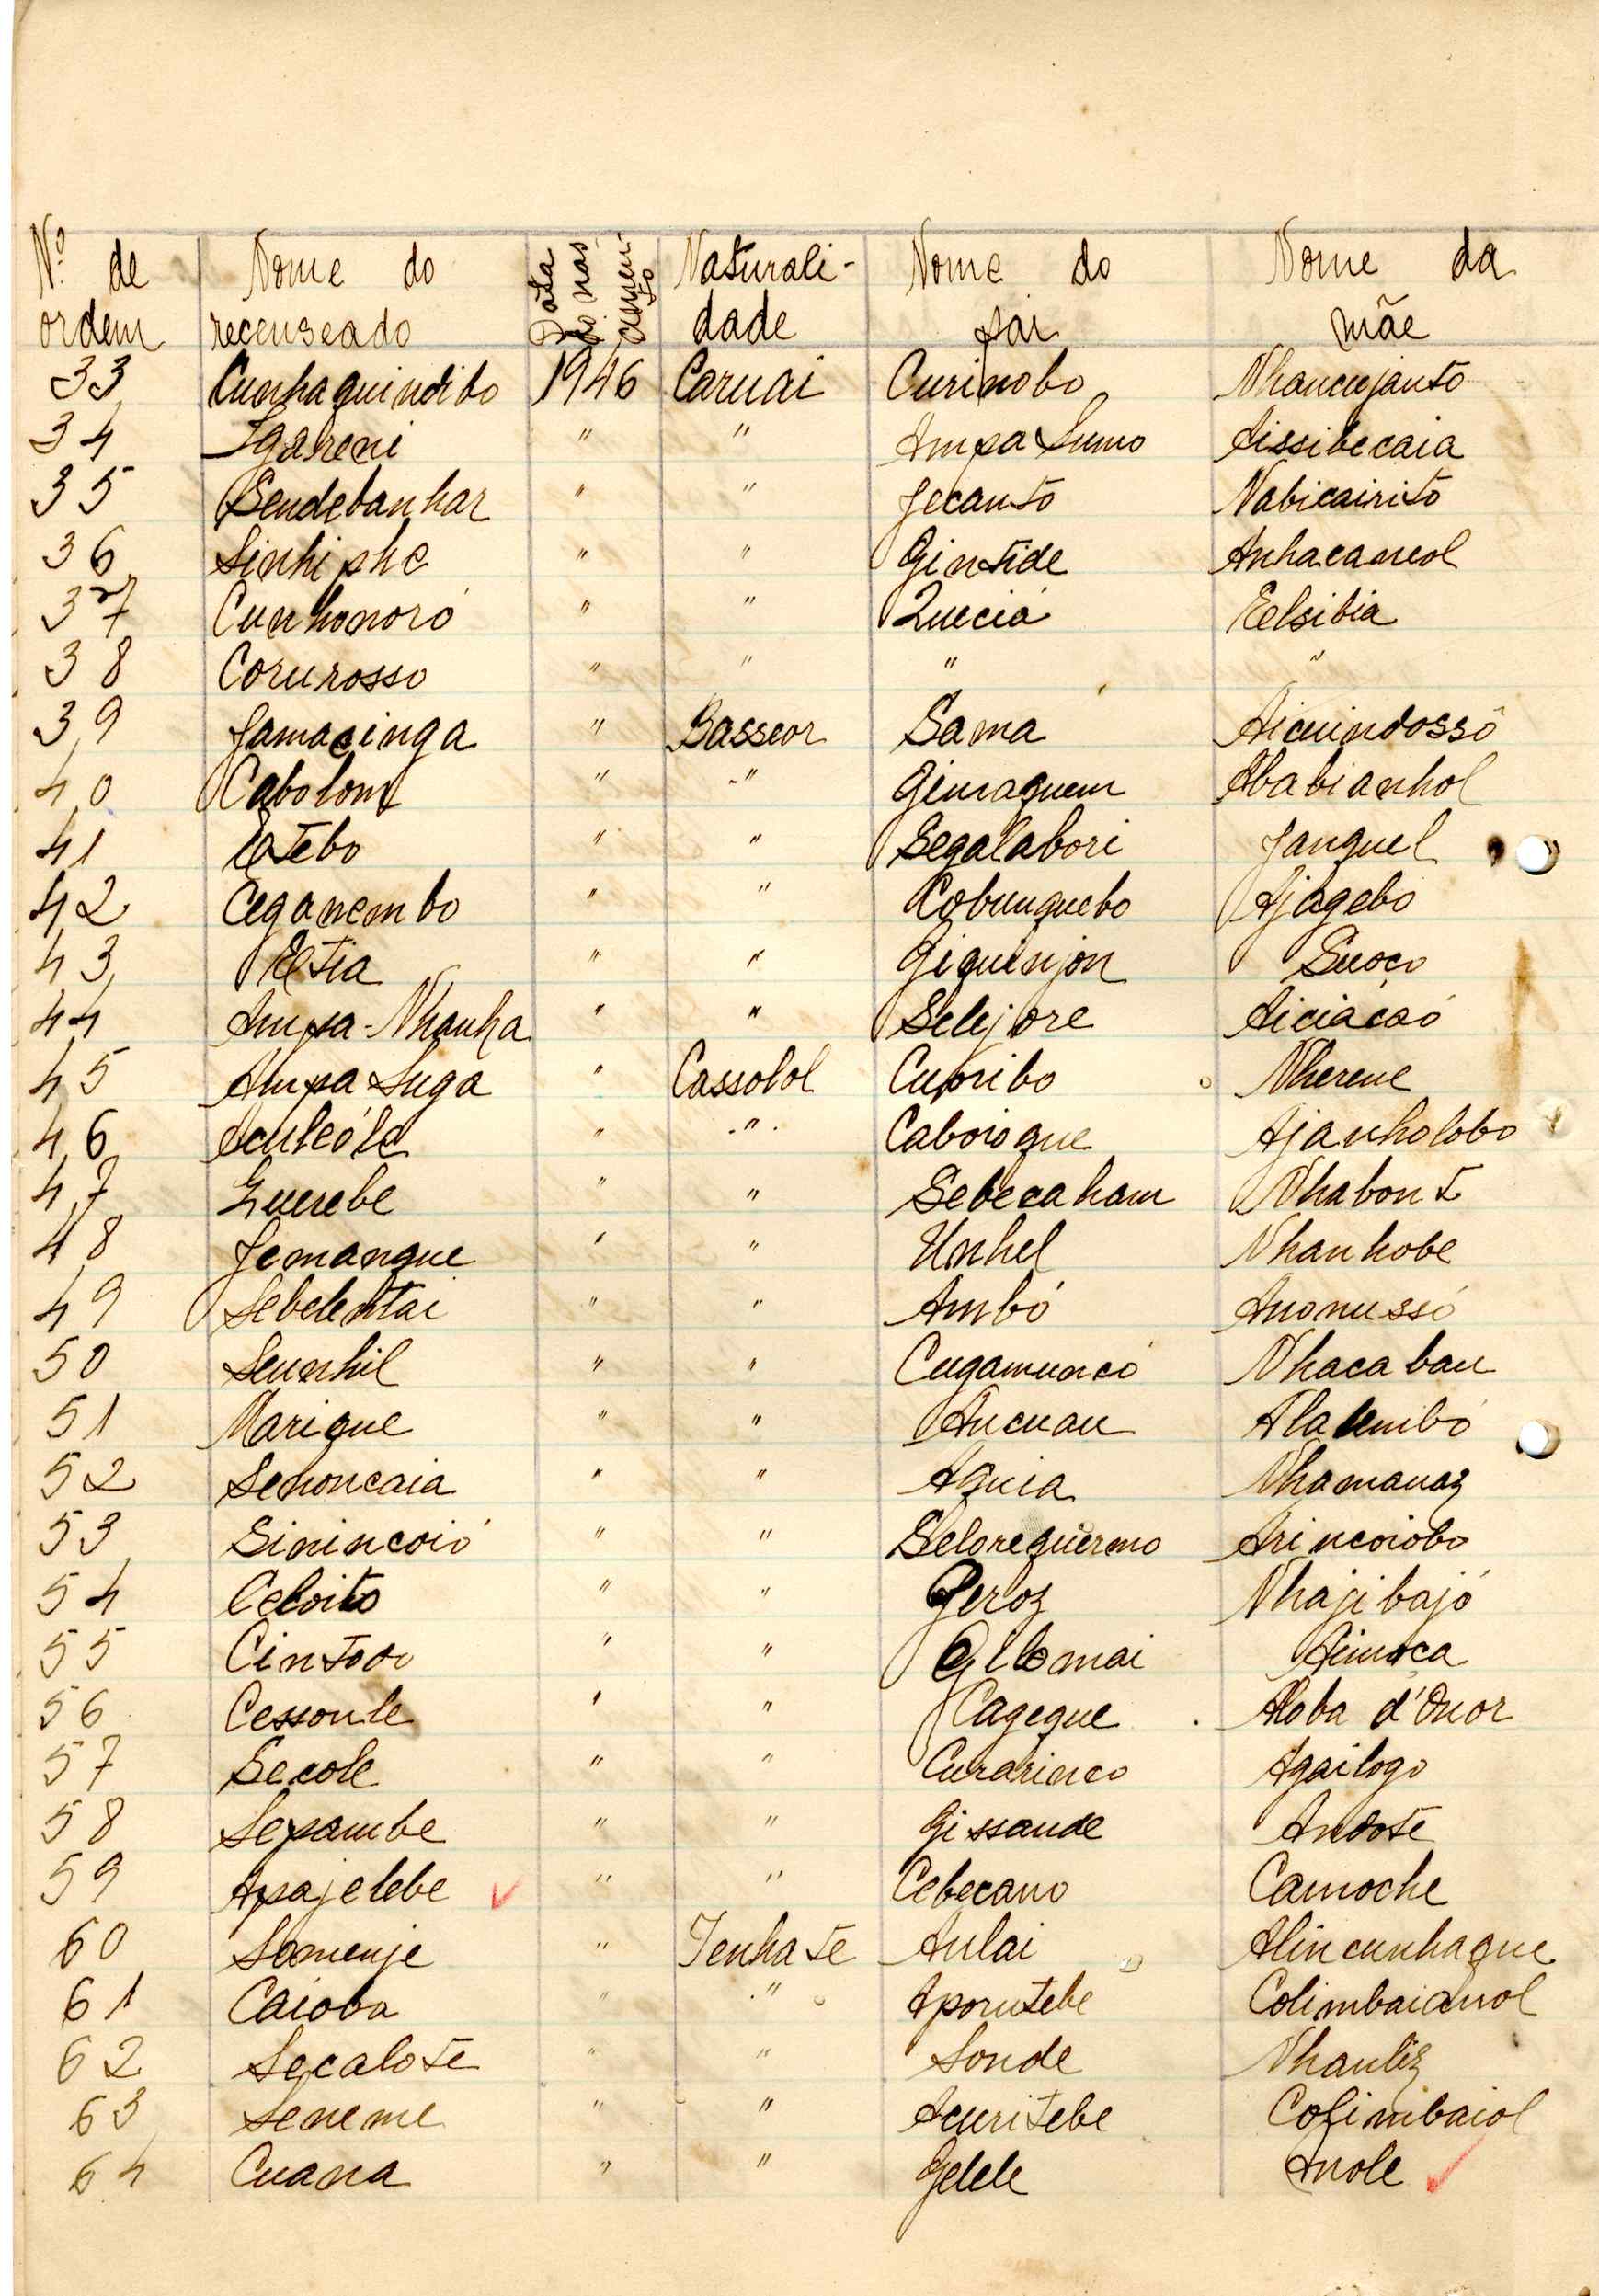 Nº de ordem Nome do recenseado Data do nascimento Naturalidade Nome do pai Nome da mãe
33 Cunhaquindibo 1946 Caruai Curinobo Nhancujanto
34 Igareni " " Ampa Sumo Aissibecaia
35 Sendebanhar " " Jecanto Nabicairito
36 Sinhiphe " " Gintide Anhacancol
37 Cunhonoró " " Queciá Eelsibia
38 Corurosso " " " "
39 Jamacinga " Basseor Sama Aicuindossó
40 Cabolom " " Gimaquem Ababianhol
41 Eatebo " " Segalabori Janquel
42 Ceganembo " " Cobunquebo Ajagebo
43 Eltia " " Giquinjon Suoco
44 Ampa-Nhanha " " Selejore Aiciacaó
45 Ampa Suga " Cassolol Cupribo Nherene
46 " " Caboioque Ajanholobo
47 Querebe " " Sebecaham Nhabont
48 Jemanque " " Unhel Nhanhobe
49 Sebelentai " " Ambó Anonussó
50 Seunhil " " Cugamuncó Nhacabau
51 Marique " " Ancuau Alatembó
52 Senoncaia " " Aguia Nhamanaz
53 Sinincoió " " Selorequermo Arincoiobo
54 Celoito " " Geroz Nhajibajó
55 Cintoo " " Gilomai Aimoca
56 Cessonle " " Cageque Aloba d'Onor
57 Secole " " Curarinco Agailogo
58 Sepambe " " Gissande Andote
59 Apajelebe " " Cebecano Camoche
60 Somenje " Tenhate Aulai Alincunhaque
61 Caioba " " Aporutebe Colimbaianol
62 Secalote " " Sonde Nhauliz
63 Seneme " " Acuritebe Cofimbaiol
64 Cuana " " Gelele Anole